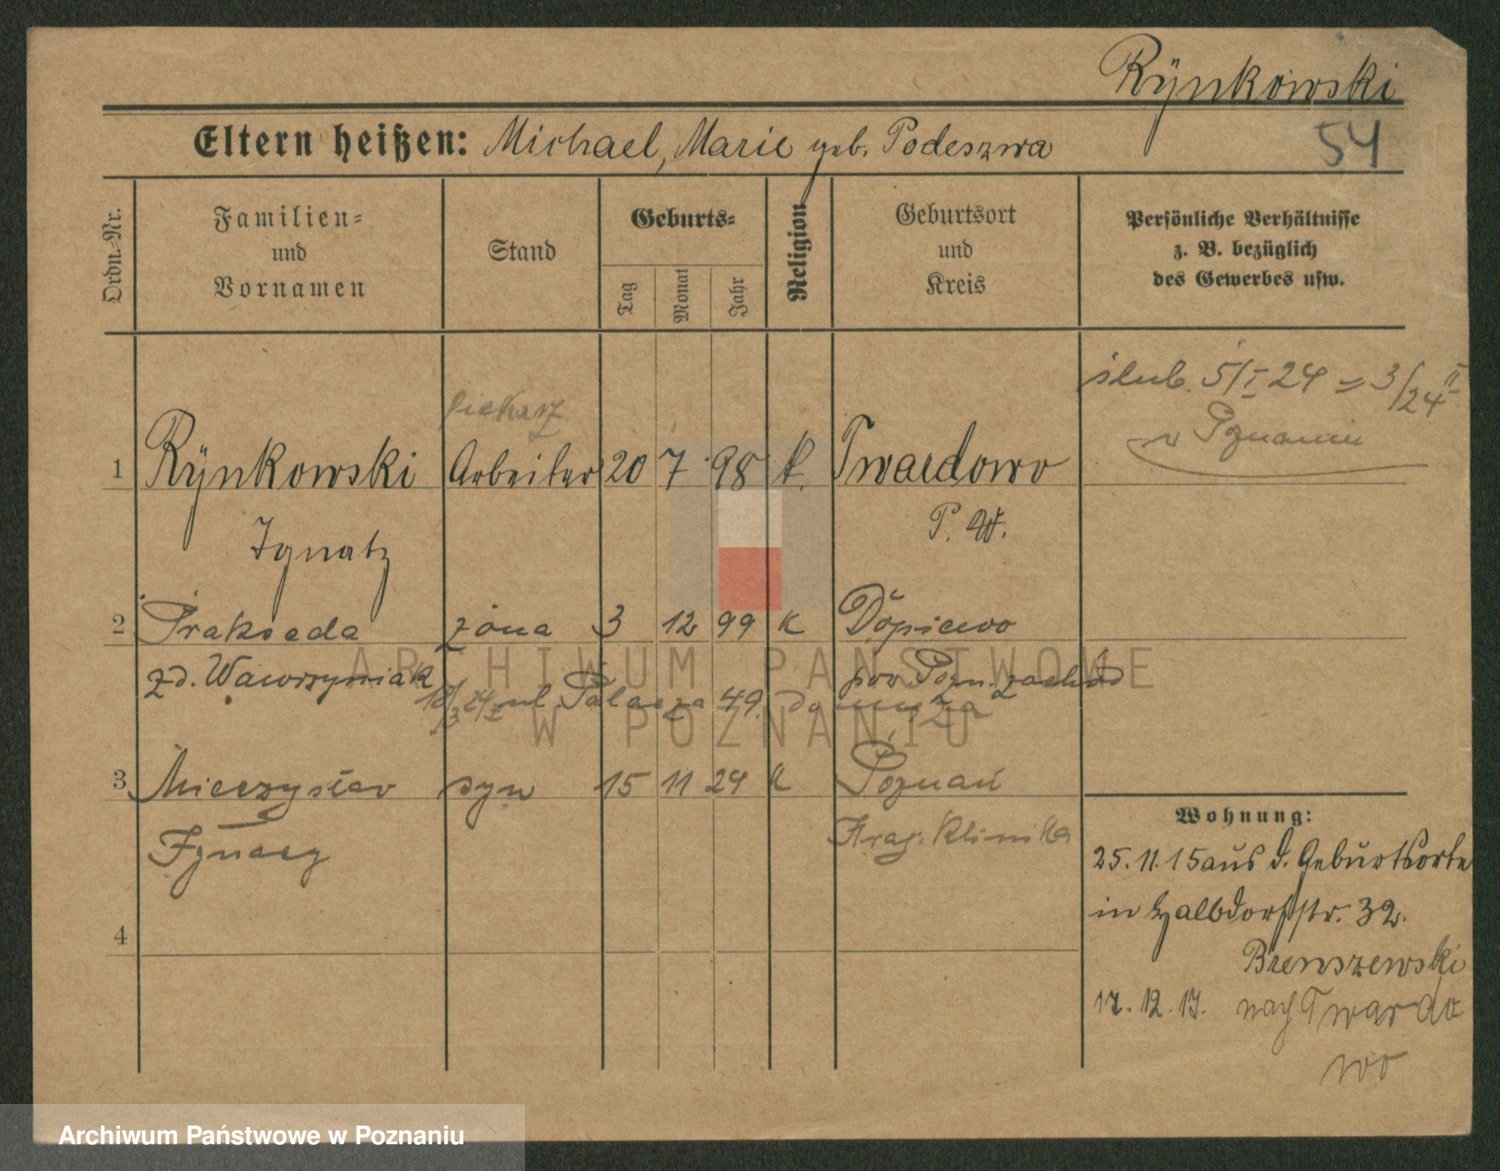 Rÿnkowski
Eltern heißen: Michael, Marie geb. Podeszwa
54
Ordn.-Nr.
Familien-
und
Vornamen
Stand
Geburts-
Tag
Monat
Jahr
Religion
Geburtsort
und
Kreis
Persönliche Verhältnisse
z. B. bezüglich
des Gewerbes usw.
ślub. 5/I 24 = 3/24 II
w Poznaniu
piekarz
1 Rÿnkowski Arbeiter 20 7 98 k. Twardowo
Ignatz P. W.
2 Prakseda żona 3 12 99 k Dopiewo
zd. Wawrzyniak pow. Pozn. zachód
ul. Palacza 49. do męża
3 Mieczysław syn 15 11 24 k Poznań
Ignacy Klinika
4
Wohnung:
25.11.15 aus d. Geburtsorte
in Halbdorfstr. 32.
17.12.17. nach Twardo
wo
ARCHIWUM PAŃSTWOWE
W POZNANIU
Archiwum Państwowe w Poznaniu